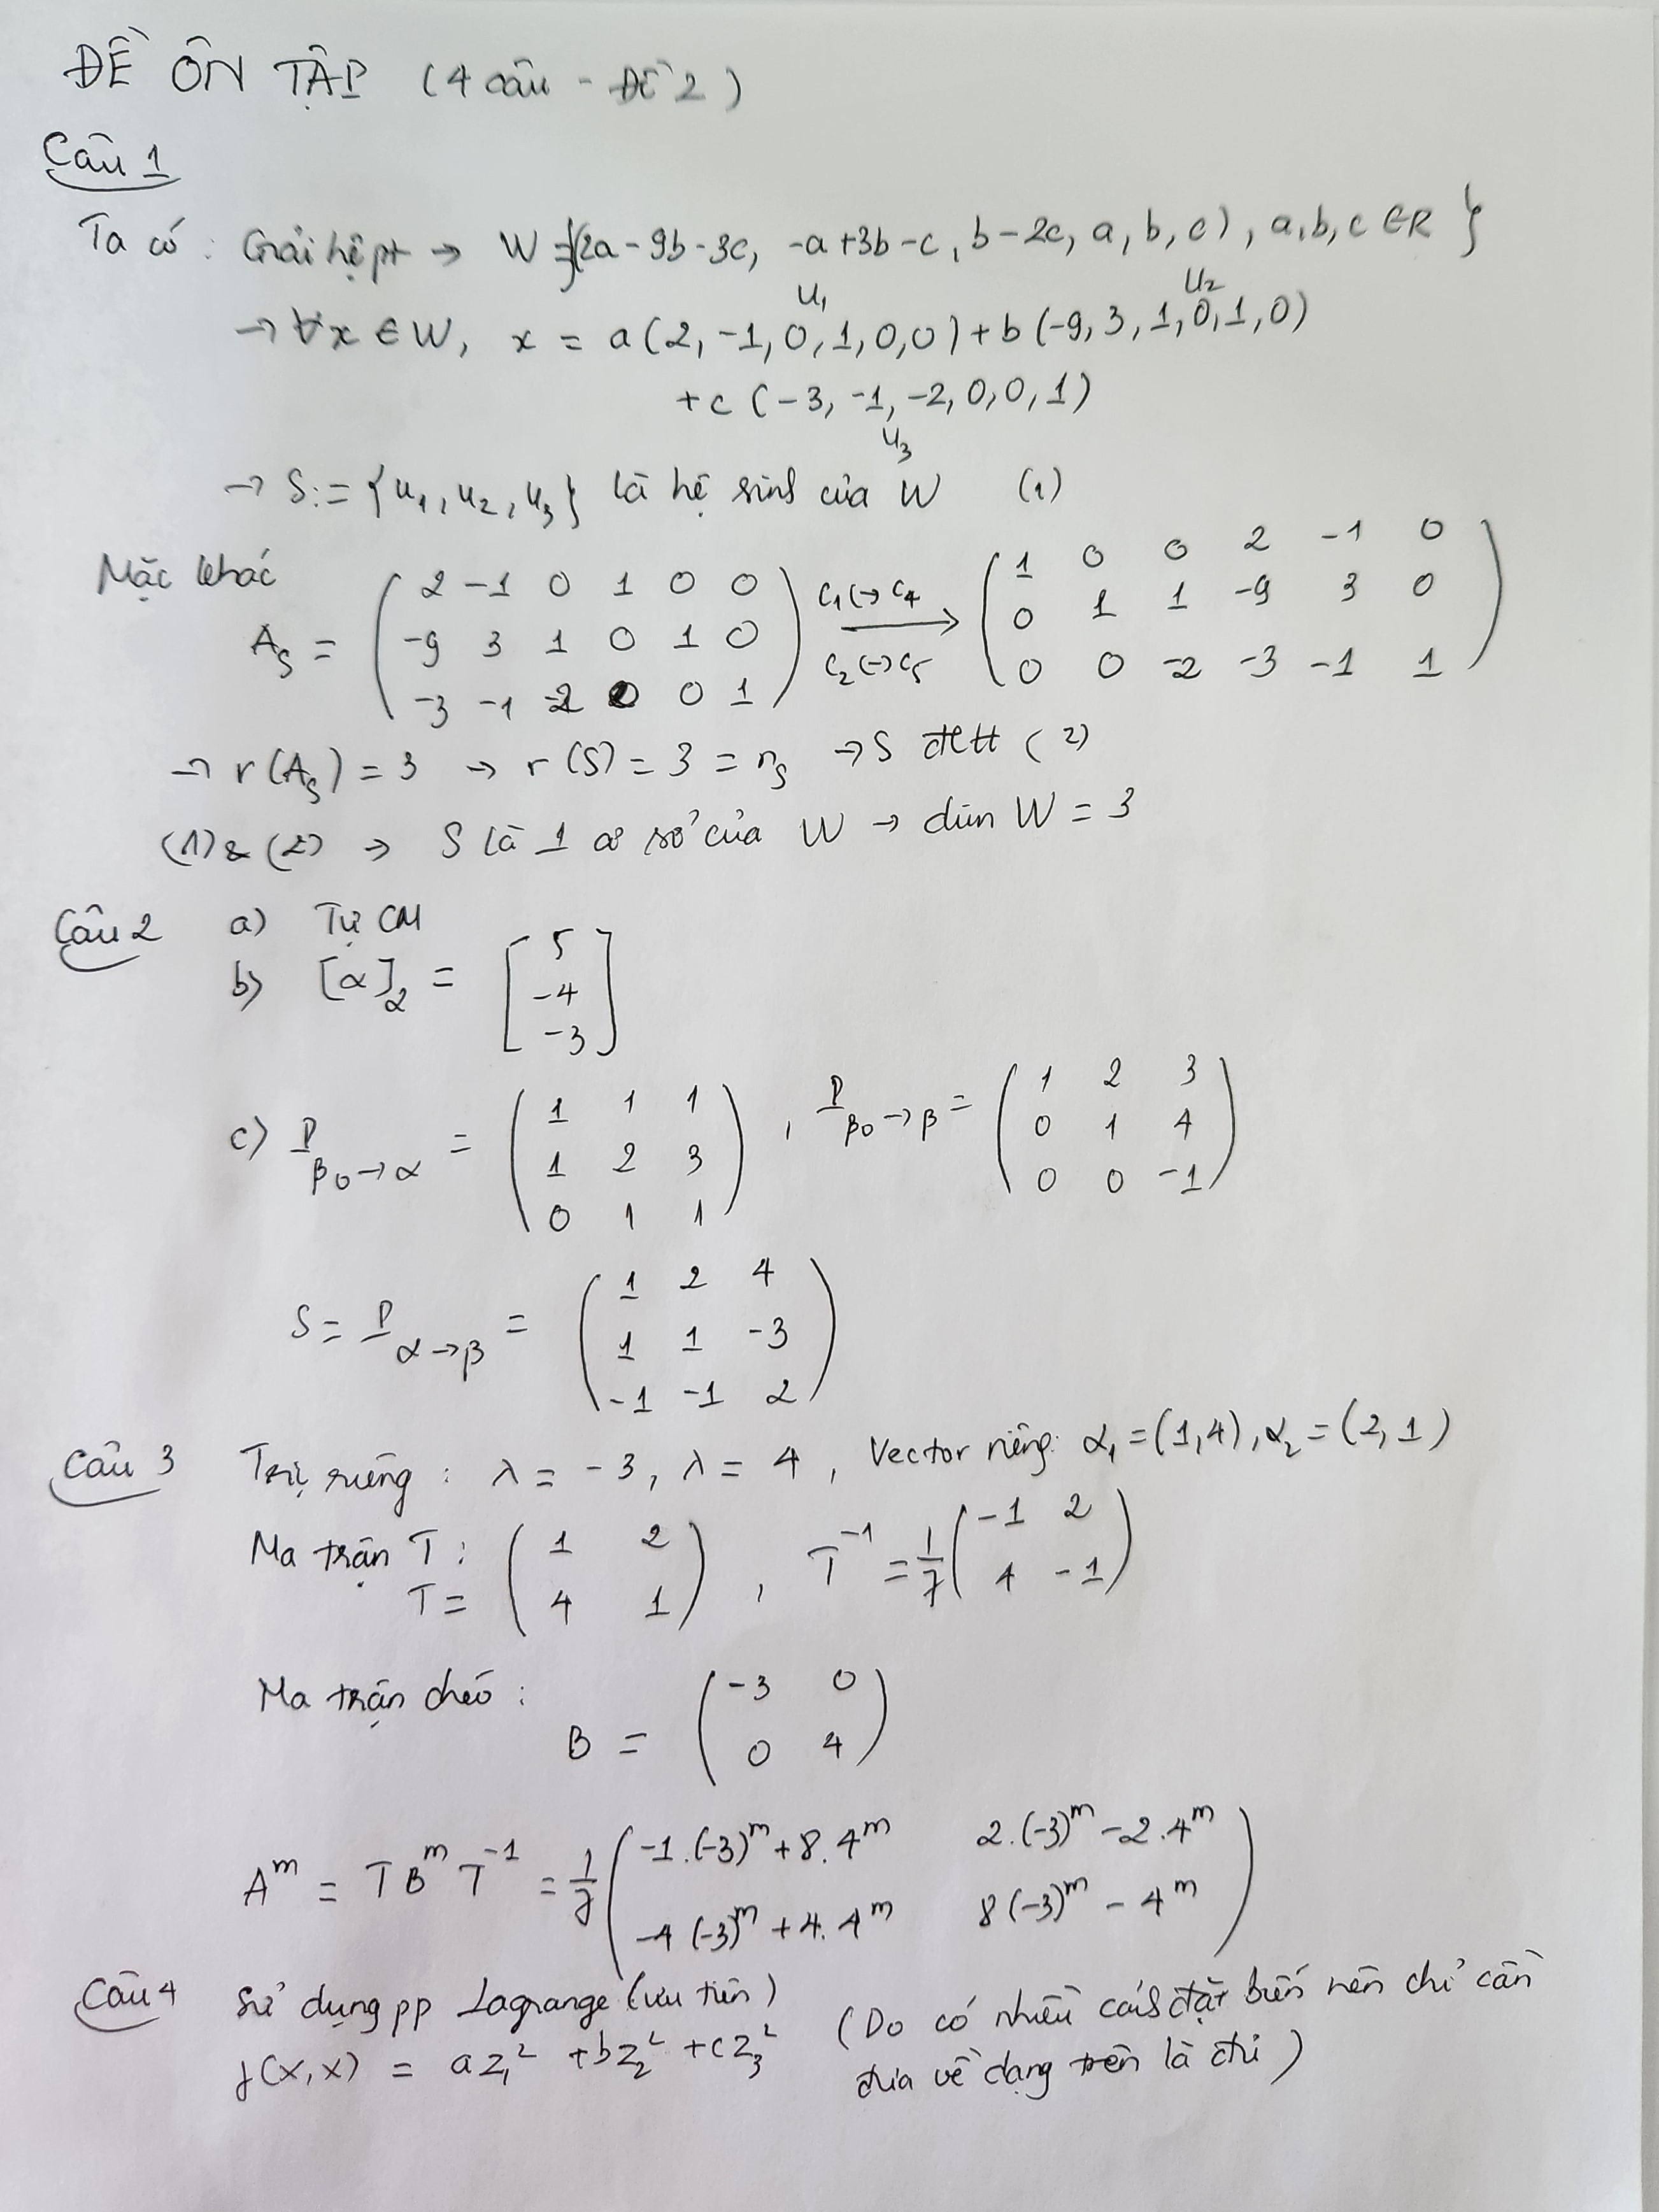 ĐỀ ÔN TẬP (4 câu - Đề 2)
Câu 1
Ta có: Giải hệ pt → W = {(2a - 9b - 3c, -a + 3b - c, b - 2c, a, b, c), a, b, c ∈ R}
→ ∀x ∈ W, x = a(2, -1, 0, 1, 0, 0) + b(-9, 3, 1, 0, 1, 0)
u₁ u₂
+ c(-3, -1, -2, 0, 0, 1)
u₃
→ S := {u₁, u₂, u₃} là hệ sinh của W (1)
Mặc khác
A_S = ( 2 -1 0 1 0 0 ; -9 3 1 0 1 0 ; -3 -1 -2 0 0 1 ) C₁ ↔ C₄ C₂ ↔ C₅ → ( 1 0 0 2 -1 0 ; 0 1 1 -9 3 0 ; 0 0 -2 -3 -1 1 )
→ r(A_S) = 3 → r(S) = 3 = n_S → S đltt (2)
(1) & (2) → S là 1 cơ sở của W → dim W = 3
Câu 2 a) Tự CM
b) [α]₂ = [ 5 ; -4 ; -3 ]
c) P_{β₀→α} = ( 1 1 1 ; 1 2 3 ; 0 1 1 ), P_{β₀→β} = ( 1 2 3 ; 0 1 4 ; 0 0 -1 )
S = P_{α→β} = ( 1 2 4 ; 1 1 -3 ; -1 -1 2 )
Câu 3 Trị riêng: λ = -3, λ = 4, Vector riêng: α₁ = (1, 4), α₂ = (2, 1)
Ma trận T:
T = ( 1 2 ; 4 1 ), T⁻¹ = 1/7 ( -1 2 ; 4 -1 )
Ma trận chéo:
B = ( -3 0 ; 0 4 )
Aᵐ = T Bᵐ T⁻¹ = 1/7 ( -1.(-3)ᵐ + 8.4ᵐ 2.(-3)ᵐ - 2.4ᵐ ; -4(-3)ᵐ + 4.4ᵐ 8(-3)ᵐ - 4ᵐ )
Câu 4 Sử dụng pp Lagrange (ưu tiên) (Do có nhiều cách đặt biến nên chỉ cần
f(x,x) = az₁² + bz₂² + cz₃² đưa về dạng trên là đủ)